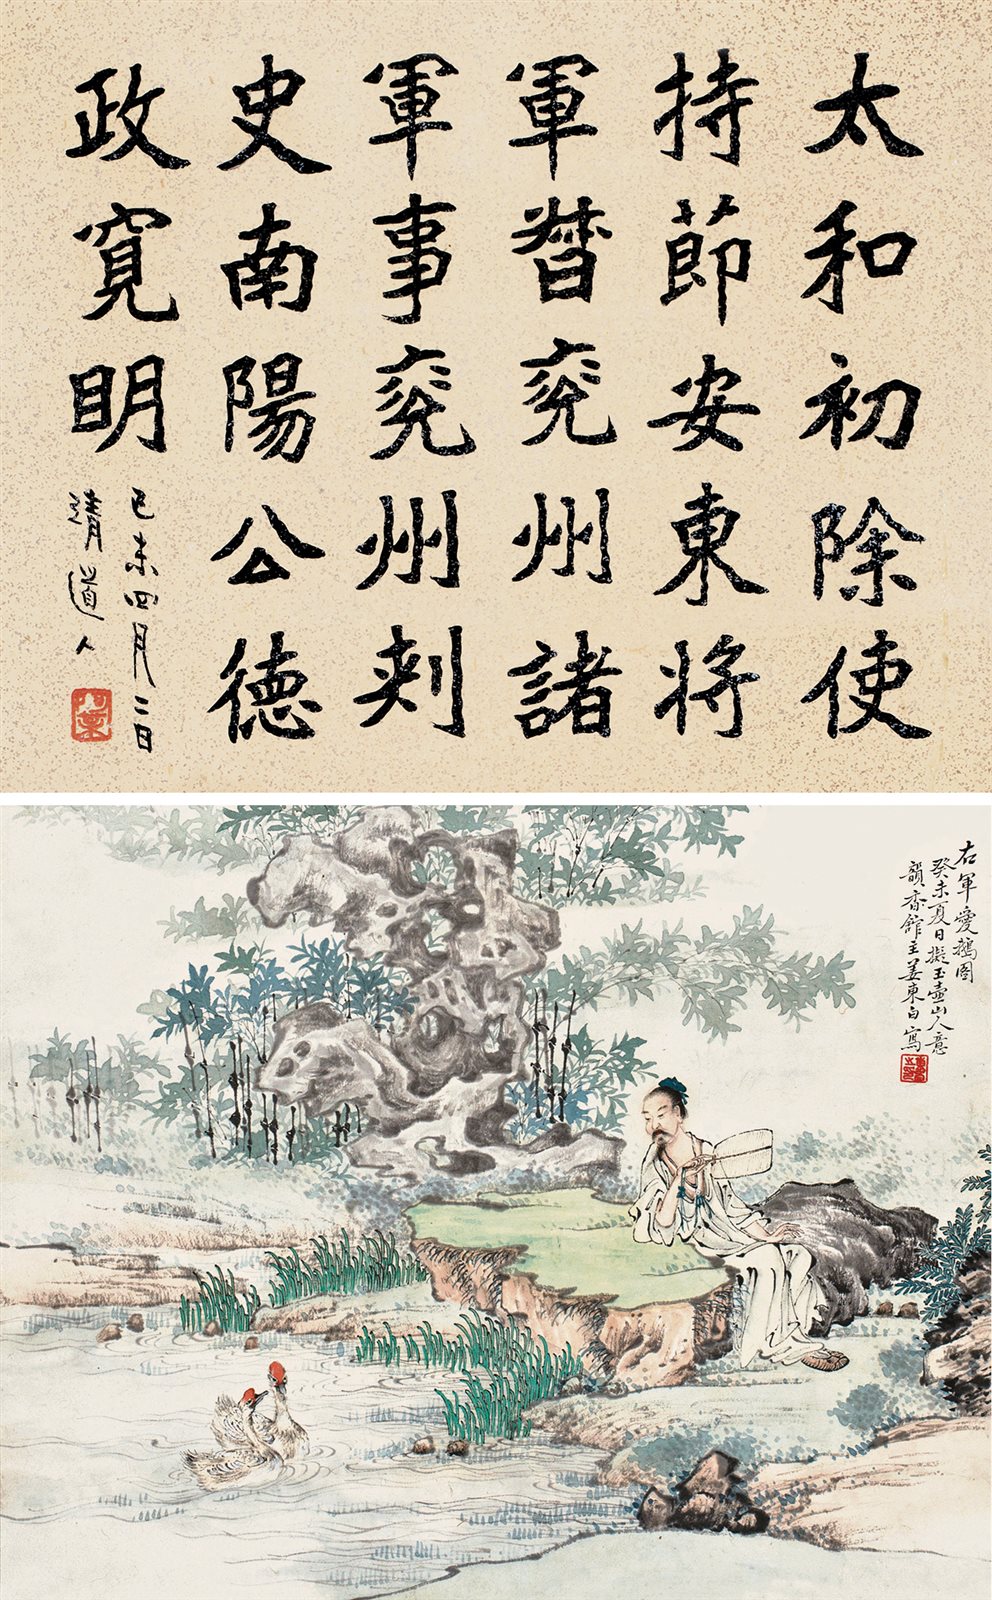 太和初除使
持節安東將
軍督兖州諸
軍事兖州刺
史南陽公德
政寬明
己未四月二日
清道人
右軍愛鵝圖
癸未夏日擬玉壺山人意
韻香館主姜東白寫